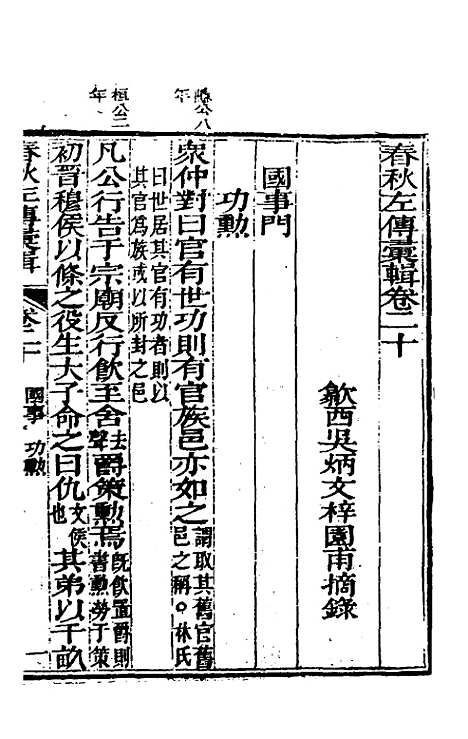 春秋左傳彚輯卷二十
歙西吳炳文梓園甫摘錄
國事門
功勲
隱公八年
衆仲對曰官有世功則有官族邑亦如之謂取其舊官舊邑之稱○林氏
曰世居其官有功者則以其官爲族或以所封之邑
桓公二年
凡公行告于宗廟反行飮至舍上聲爵策勲焉旣飮置爵則書勲勞于策
初晉穆侯以條之役生大子命之曰仇文侯也其弟以千畝
春秋左傳彚輯 卷二十 國事 功勲 一